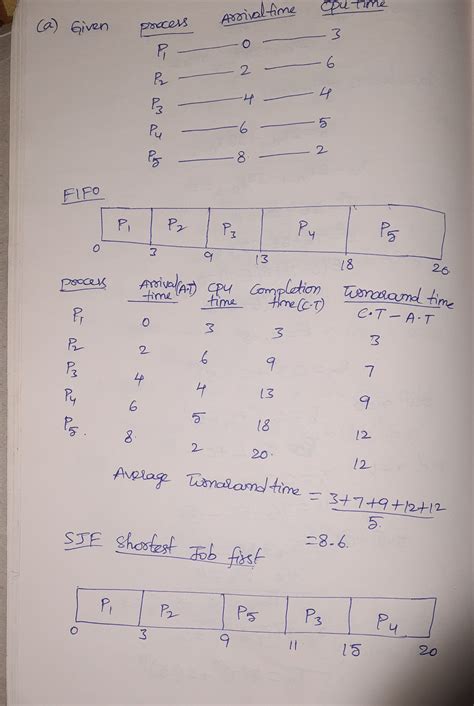 (a) Given process Arrival time Cpu time
P1 — 0 — 3
P2 — 2 — 6
P3 — 4 — 4
P4 — 6 — 5
P5 — 8 — 2
FIFO
P1 P2 P3 P4 P5
0 3 9 13 18 20
process Arrival(A.T) time CPU time Completion time(C.T) Turnaround time C.T - A.T
P1 0 3 3 3
P2 2 6 9 7
P3 4 4 13 9
P4 6 5 18 12
P5. 8. 2 20. 12
Average Turnaround time = 3+7+9+12+12 / 5.
= 8.6.
SJF Shortest Job first
P1 P2 P5 P3 P4
0 3 9 11 15 20